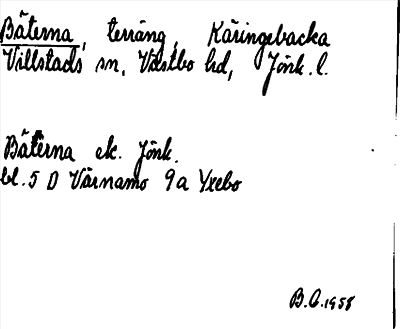 Bäterna, terräng, Käringebacka
Villstads sn, Västbo hd, Jönk. l.
Bäterna ek. Jönk.
bl. 5 D Värnamo 9a Yxebo
B.G. 1958